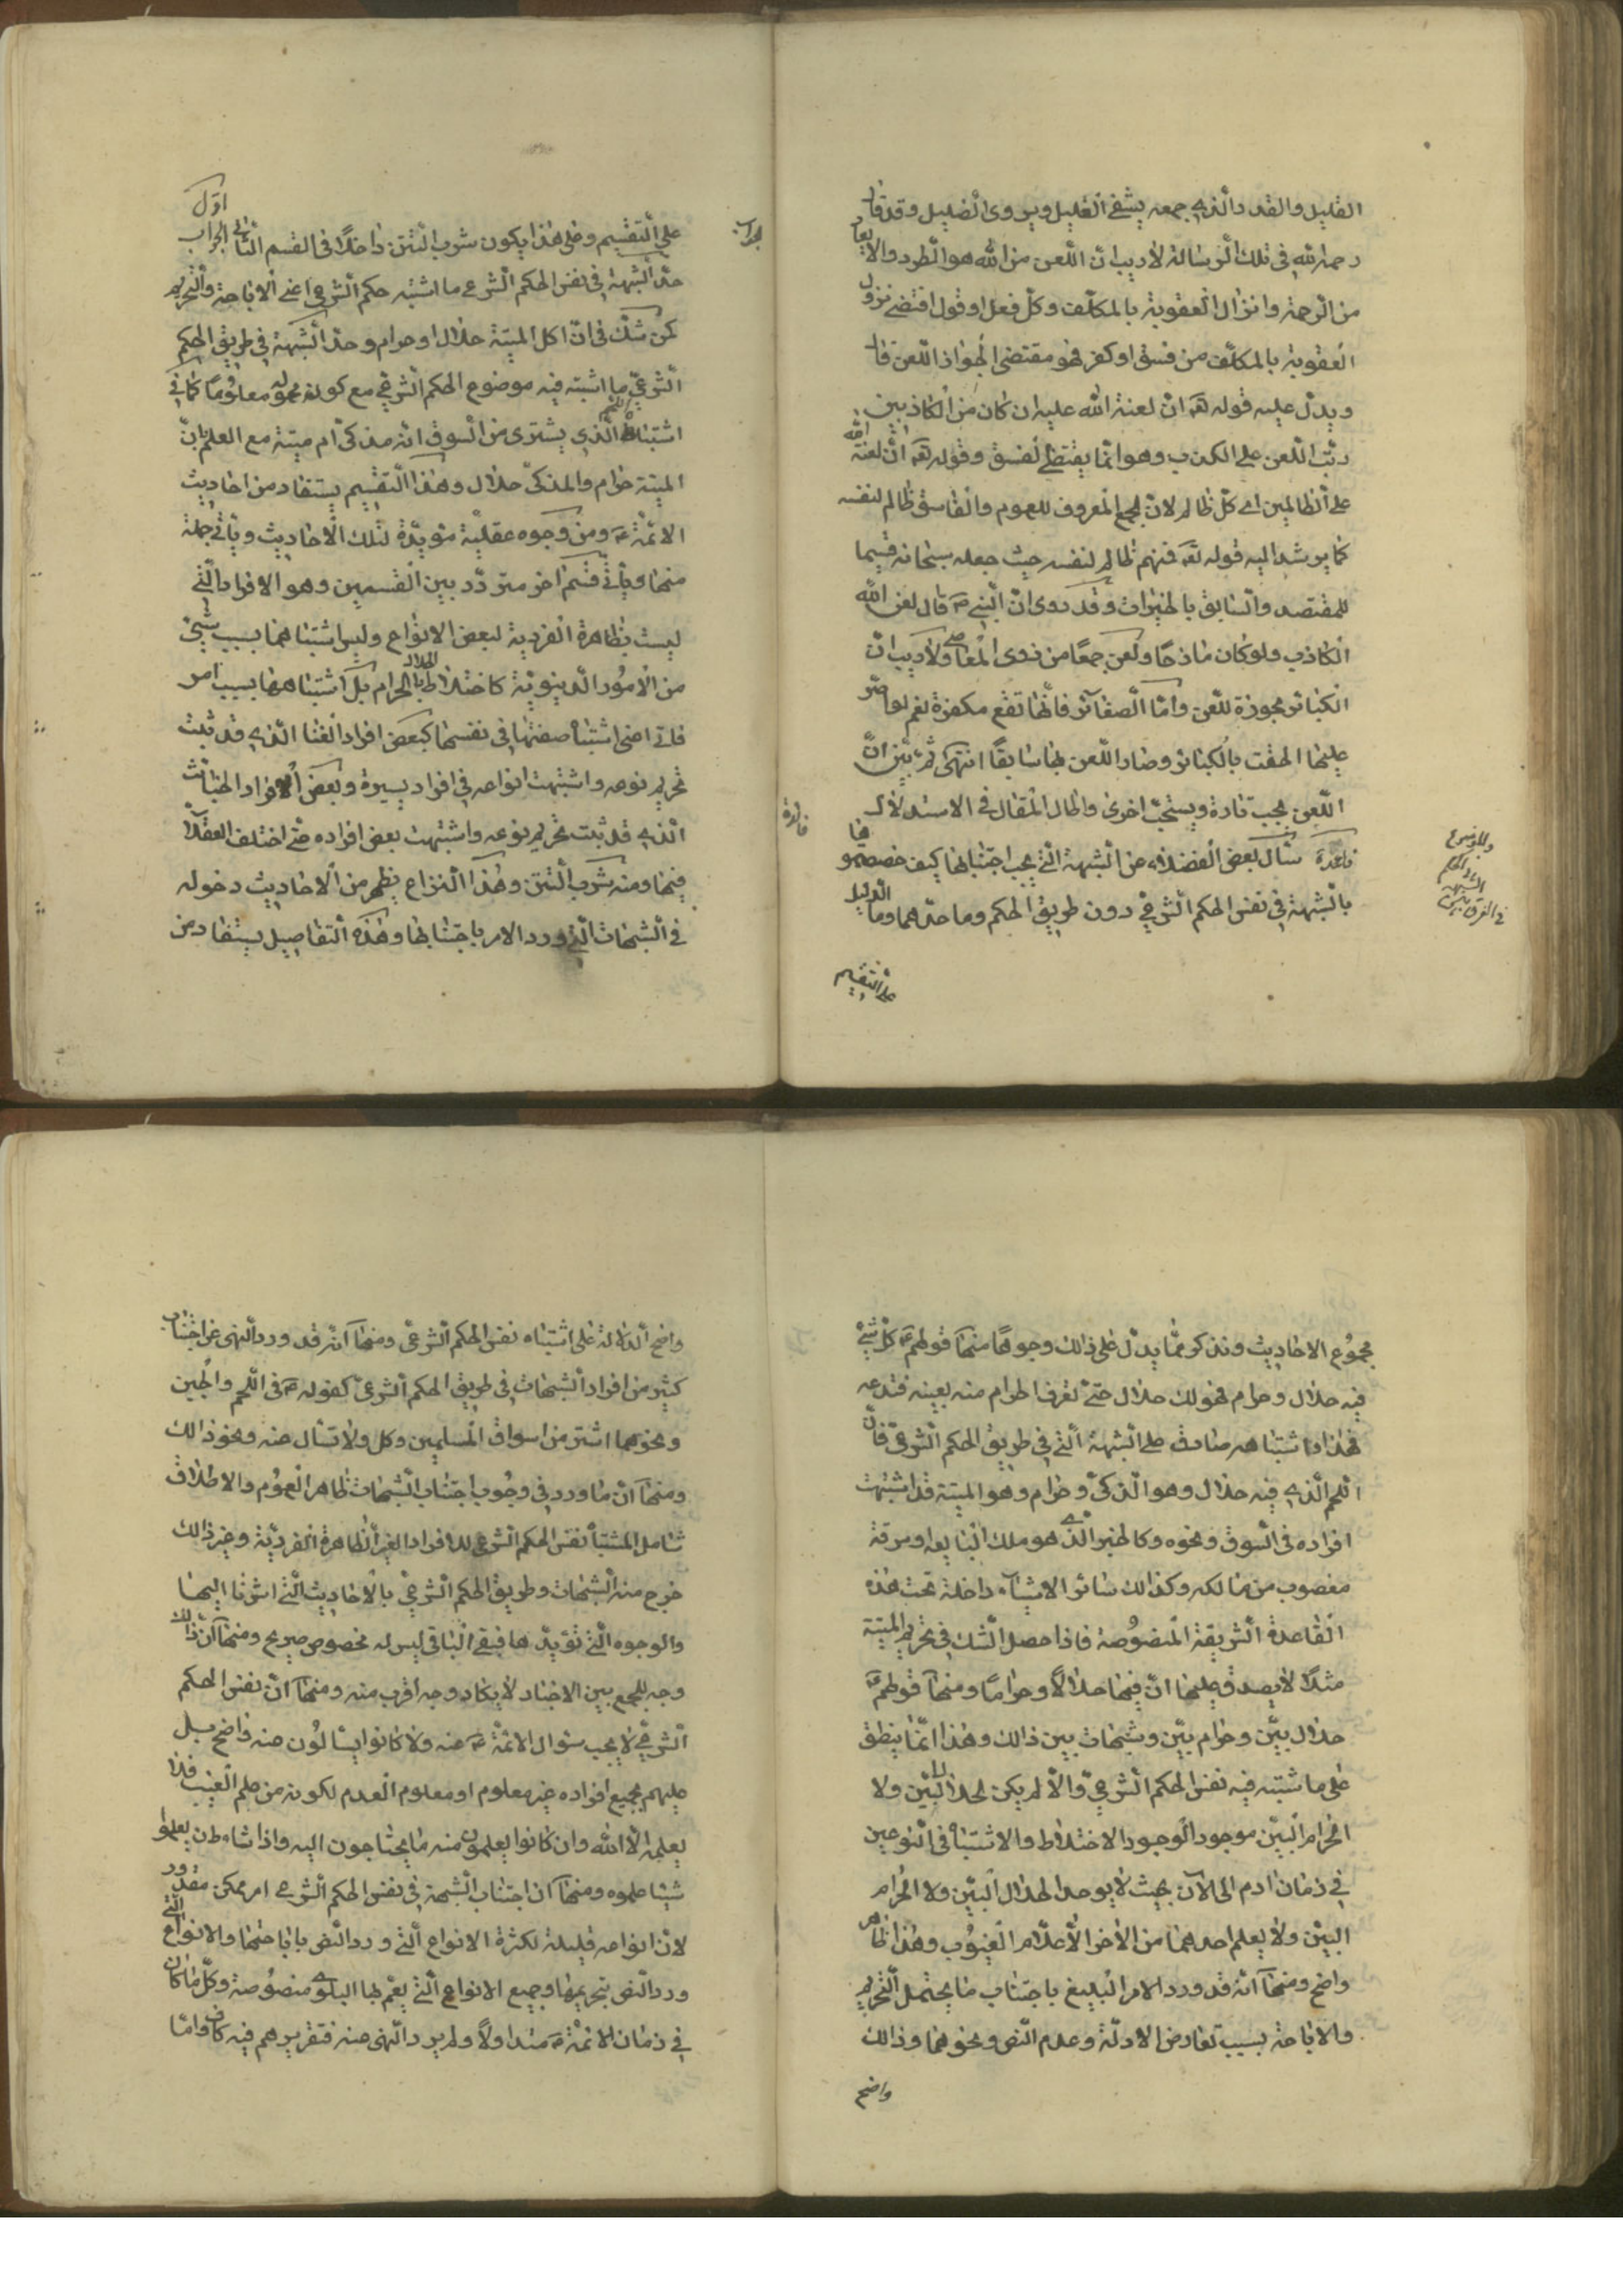 القليل والقد والذي جمعه يشفي الغليل ويروى الضليل وقد قال
رحمه الله في تلك الرسالة لا ريب ان اللعن من الله هو الطرد والابعاد
من الرحمة وانزال العقوبة بالمكلف وكل فعل او قول اقتضى نزول
العقوبة بالمكلف من فسق او كفر فهو مقتضى لجواز اللعن قال
ويدل عليه قوله تعه ان لعنة الله عليه ان كان من الكاذبين
رتب اللعن على الكذب وهو انما يقتضى الفسق وقوله تعه ان لعنة الله
على الظالمين اى كل ظالم لان الجمع المعروف للعموم والفاسق ظالم لنفسه
كما يرشد اليه قوله تعه فمنهم ظالم لنفسه حيث جعله سبحانه قسيما
للمقتصد والسابق بالخيرات وقد روى ان النبي ص قال لعن الله
الكاذب ولو كان مازحا ولعن جمعا من ذوى المعاصى ولا ريب ان
الكبائر مجوزة للعن واما الصغائر فانها تقع مكفرة نعم لو اصر
عليها الحقت بالكبائر وصار اللعن بها سابقا انتهى ثم بين ان
اللعن يجب تارة ويستحب اخرى واطال المقال في الاستدلال
فائدة
قاعدة سأل بعض الفضلاء عن الشبهة التي يجب اجتنابها كيف خصصتموها
بالشبهة في نفس الحكم الشرعي دون طريق الحكم وما حدهما وما الدليل
في الفرق بين
الشبهة
على التقسيم
اول
الجواب
على التقسيم وعلى هذا يكون شرب التتن داخلا في القسم الثاني الجواب
حد الشبهة في نفس الحكم الشرعي ما اشتبه حكم الشرعي اعني الاباحة والتحريم
كمن شك في ان اكل الميتة حلال او حرام وحد الشبهة في طريق الحكم
الشرعي ما اشتبه فيه موضوع الحكم الشرعي مع كون محموله معلوما كما في
اشتباه اللحم الذي يشترى من السوق انه مذكى ام ميتة مع العلم بان
الميتة حرام والمذكى حلال وهذا التقسيم يستفاد من احاديث
الائمة ع ومن وجوه عقلية مؤيدة لتلك الاحاديث وياتي جملة
منها وياتي قسم اخر متردد بين القسمين وهو الافراد التي
ليست بظاهرة الفردية لبعض الانواع وليس اشتباهها بسبب شيء
من الامور الدنيوية كاختلاط الحلال بالحرام بل اشتباهها بسبب امر
ذاتي اعنى اشتباه صفتها في نفسها كبعض افراد الغنا الذي قد ثبت
تحريم نوعه واشتبهت انواعه في افراد يسيرة وبعض افراد الخبائث
الذي قد ثبت تحريم نوعه واشتبهت بعض افراده حتى اختلف العقلاء
فيها ومنه شرب التتن وهذا النزاع يظهر من الاحاديث دخوله
في الشبهات التي ورد الامر باجتنابها وهذه التفاصيل يستفاد من
مجموع الاحاديث ونذكر مما يدل على ذلك وجوها منها قولهم ع كل شيء
فيه حلال وحرام فهو لك حلال حتى تعرف الحرام منه بعينه فتدعه
فهذا واشتباهه صادق على الشبهة التي في طريق الحكم الشرعي فان
اللحم الذي فيه حلال وهو المذكى وحرام وهو الميتة قد اشتبهت
افراده في السوق ونحوه وكالخبز الذي هو ملك البايعه او سرقة
مغصوب من مالكه وكذلك سائر الاشياء داخلة تحت هذه
القاعدة الشريفة المنصوصة فاذا حصل الشك في تحريم الميتة
مثلا لا يصدق عليها ان فيها حلالا وحراما ومنها قولهم ع
حلال بين وحرام بين وشبهات بين ذلك وهذا انما ينطبق
على ما شتبه فيه نفس الحكم الشرعي والا لم يكن لحلال البين ولا
الحرام البين موجود الوجود الاختلاط والاشتباه في النوعين
في زمان ادم الى الان بحيث لا يوجد الحلال البين ولا الحرام
البين ولا يعلم احدهما من الاخر الا علام الغيوب وهذا ظاهر
واضح ومنها انه قد ورد الامر البليغ باجتناب ما يحتمل التحريم
والاباحة بسبب تعارض الادلة وعدم النص ونحوهما وذلك
واضح
واضح الدلالة على اشتباه نفس الحكم الشرعي ومنها انه قد ورد النهى عن اجتناب
كثير من افراد الشبهات في طريق الحكم الشرعي كقوله ع في اللحم والجبن
ونحوهما اشتر من اسواق المسلمين وكل ولا تسأل عنه ونحو ذلك
ومنها ان ما ورد في وجوب اجتناب الشبهات ظاهر العموم والاطلاق
شامل لمشتبه نفس الحكم الشرعي للافراد الغير الظاهرة الفردية وغير ذلك
خرج منه الشبهات وطريق الحكم الشرعي بالاحاديث التي اشرنا اليها
والوجوه التي تؤيدها فبقي الباقي ليس له مخصوص صريح ومنها ان ذلك
وجه للجمع بين الاخبار لا يكاد وجه اقرب منه ومنها ان نفس الحكم
الشرعي لا يجب سؤال الائمة ع عنه ولا كانوا يسألون عنه واضح بل
عليهم بجميع افراده غير معلوم او معلوم العدم لكونه من علم الغيب فلا
يعلمه الا الله وان كانوا يعلمون منه ما يحتاجون اليه واذا شاءوا ان يعلموا
شيئا علموه ومنها ان اجتناب الشبهة في نفس الحكم الشرعي امر ممكن مقدور
لان انواعه قليلة لكثرة الانواع التي ورد النص باباحتها والانواع التي
ورد النص بتحريمها وجميع الانواع التي يعم بها البلوى منصوصة وكل ما كان
في زمان الائمة ع متداولا ولم يرد النهى عنه فتقريرهم فيه كاف واما